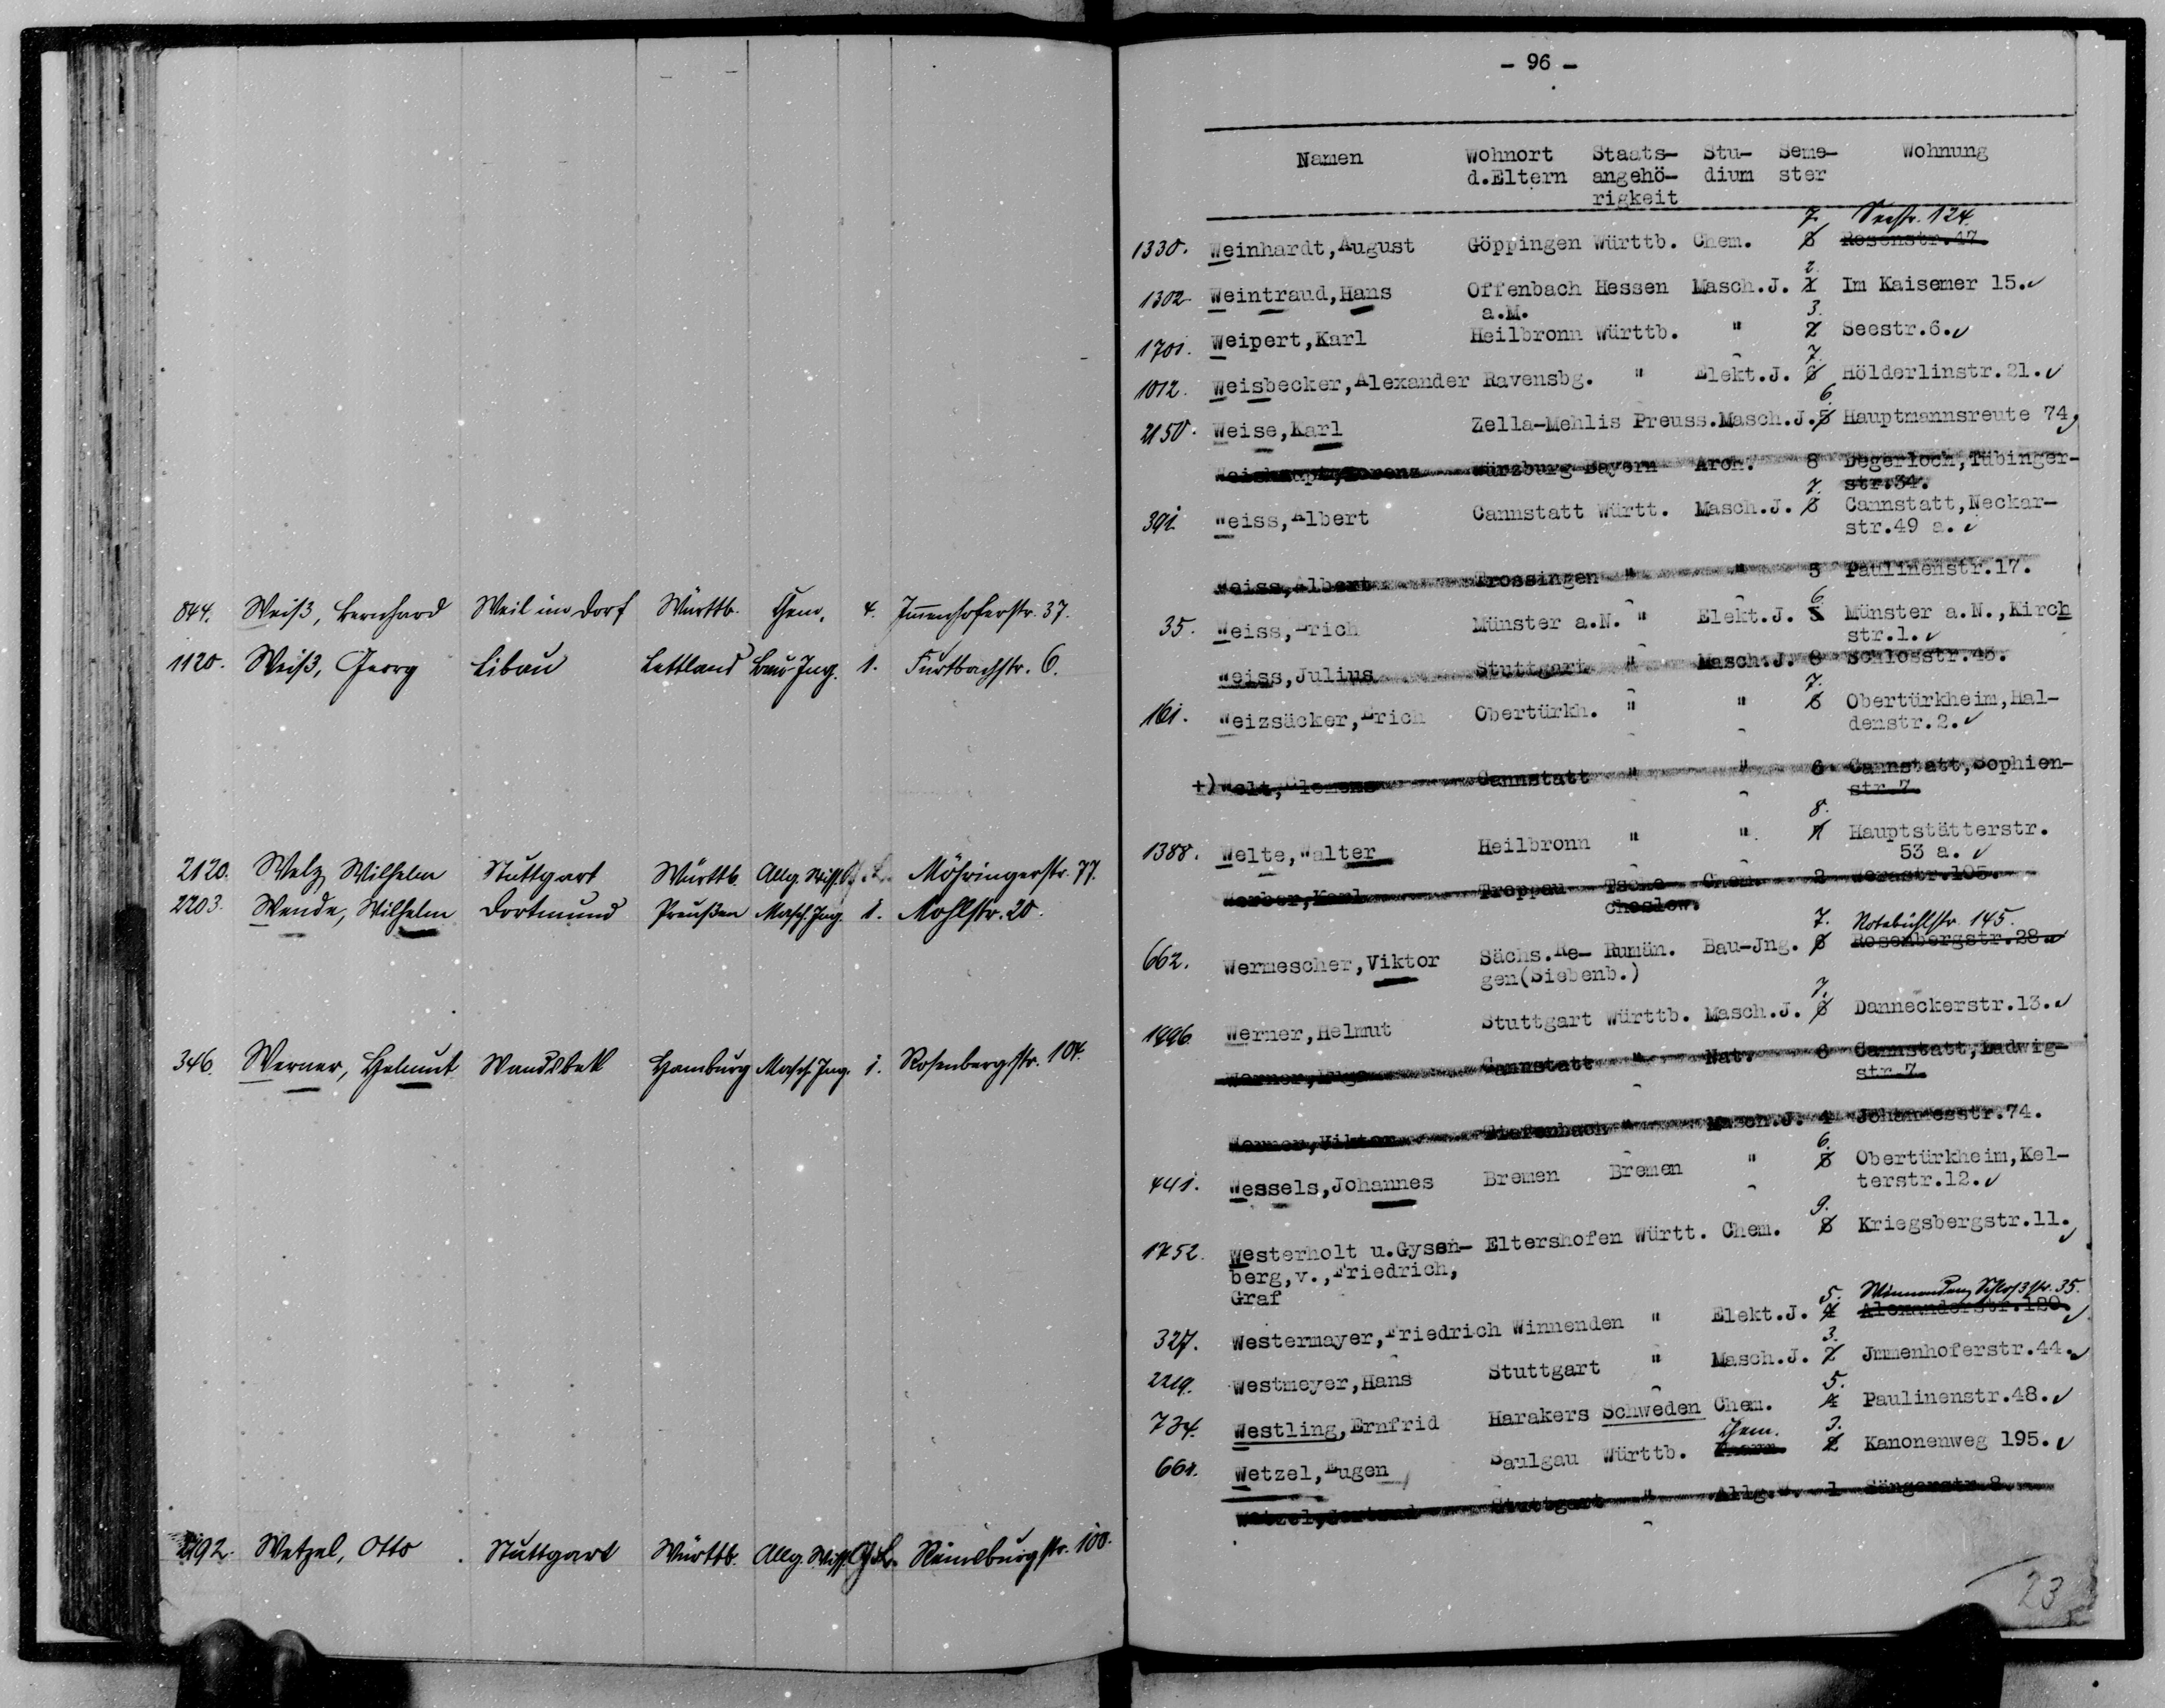 844. Weiß, Bernhard Weil im Dorf Württb. Chem. 4. Immenhoferstr. 37.
1120. Weiß, Georg Libau Lettland Bau-Ing. 1. Furtbachstr. 6.
2120. Welz, Wilhelm Stuttgart Württb. Allg. Wiss. Möhringerstr. 77.
2203. Wende, Wilhelm Dortmund Preußen Masch. Ing. 1. Mohlstr. 20.
346. Werner, Helmut Wandsbek Hamburg Masch. Ing. 1. Rosenbergstr. 104.
2192. Wetzel, Otto Stuttgart Württb. Allg. Wiss. Reinsburgstr. 100.
- 96 -
Namen Wohnort Staats- Stu- Seme- Wohnung
d.Eltern angehö- dium ster
rigkeit
7. Seestr. 124.
1330. Weinhardt,August Göppingen Württb. Chem. 6 Rosenstr.47.
2.
1302. Weintraud,Hans Offenbach Hessen Masch.J. 1 Im Kaisemer 15.
a.M.
3.
1701. Weipert,Karl Heilbronn Württb. " 2 Seestr.6.
7.
1012. Weisbecker,Alexander Ravensbg. " Elekt.J. 6 Hölderlinstr.21.
6.
2150. Weise,Karl Zella-Mehlis Preuss.Masch.J.5 Hauptmannsreute 74,
Weishaupt,Lorenz Würzburg Bayern Arch. 8 Degerloch,Tübinger-
str.34.
7.
391. Weiss,Albert Cannstatt Württ. Masch.J. 6 Cannstatt,Neckar-
str.49 a.
Weiss,Albert Trossingen " " 5 Paulinenstr.17.
6
35. Weiss,Erich Münster a.N. " Elekt.J. 5 Münster a.N.,Kirch
str.1.
Weiss,Julius Stuttgart " Masch.J. 8 Schlosstr.43.
7.
161. Weizsäcker,Erich Obertürkh. " " 6 Obertürkheim,Hal-
denstr.2.
+) Welt,Clemens Cannstatt " " 6 Cannstatt,Sophien-
str.7.
8.
1388. Welte,Walter Heilbronn " " 7 Hauptstätterstr.
53 a.
Werber,Karl Troppau Tsche- Chem. 2 Werastr.105.
choslow.
7. Rotebühlstr. 145.
662. Wermescher,Viktor Sächs.Re- Rumän. Bau-Jng. 6 Rosenbergstr.28
gen(Siebenb.)
7.
1996 Werner,Helmut Stuttgart Württb. Masch.J. 6 Danneckerstr.13.
Werner,Hugo Cannstatt " Nat. 6 Cannstatt,Ludwig-
str.7.
Werner,Viktor Tiefenbach " Masch.J. 4 Johannesstr.74.
6.
441. Wessels,Johannes Bremen Bremen " 5 Obertürkheim,Kel-
terstr.12.
9.
1752. Westerholt u.Gysen- Eltershofen Württ. Chem. 8 Kriegsbergstr.11.
berg,v.,Friedrich,
Graf
5. Winnenden Schloßstr. 35.
327. Westermayer,Friedrich Winnenden " Elekt.J. 4 Alexanderstr.120
3.
2219. Westmeyer,Hans Stuttgart " Masch.J. 2 Jmmenhoferstr.44.
5.
734. Westling,Ernfrid Harakers Schweden Chem. 4 Paulinenstr.48.
Chem. 3.
661. Wetzel,Eugen Saulgau Württb. 2 Kanonenweg 195.
Wetzel,Gertrud Stuttgart " Allg.W. 1 Sängerstr.8.
23